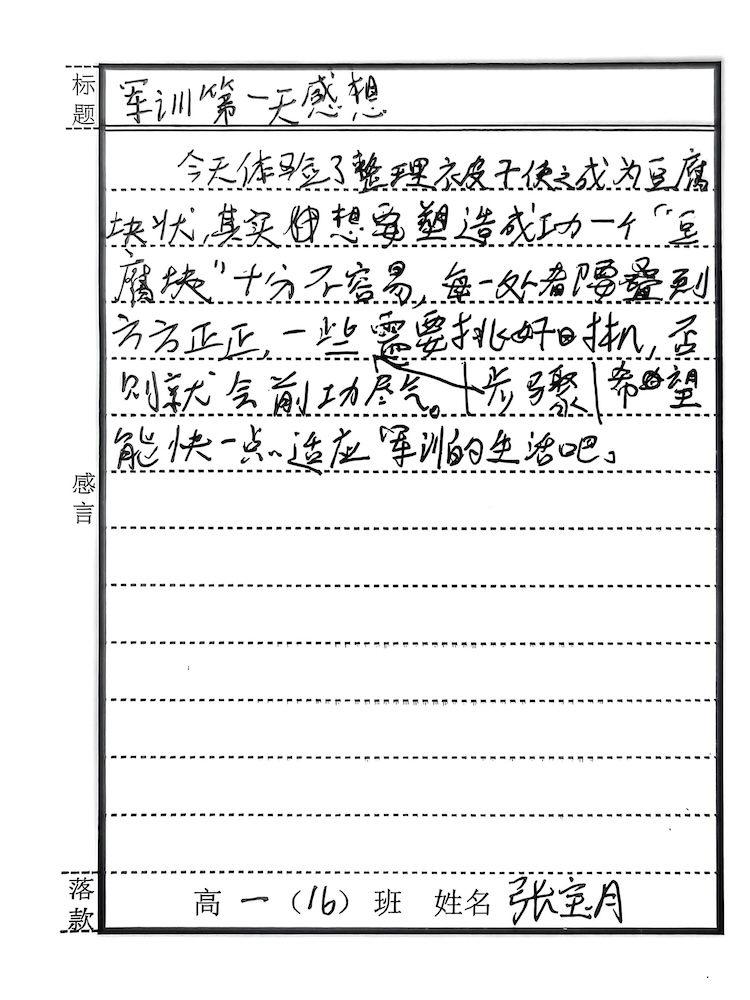 标题
军训第一天感想
今天体验了整理衣皮子使之成为豆腐
块状,其实想要塑造成功一个“豆
腐块”十分不容易,每一处都要叠到
方方正正,一些需要挑好时机,否
则就会前功尽弃。步骤希望
能快一点适应军训的生活吧。
感言
落款
高一(16)班 姓名 张宝月